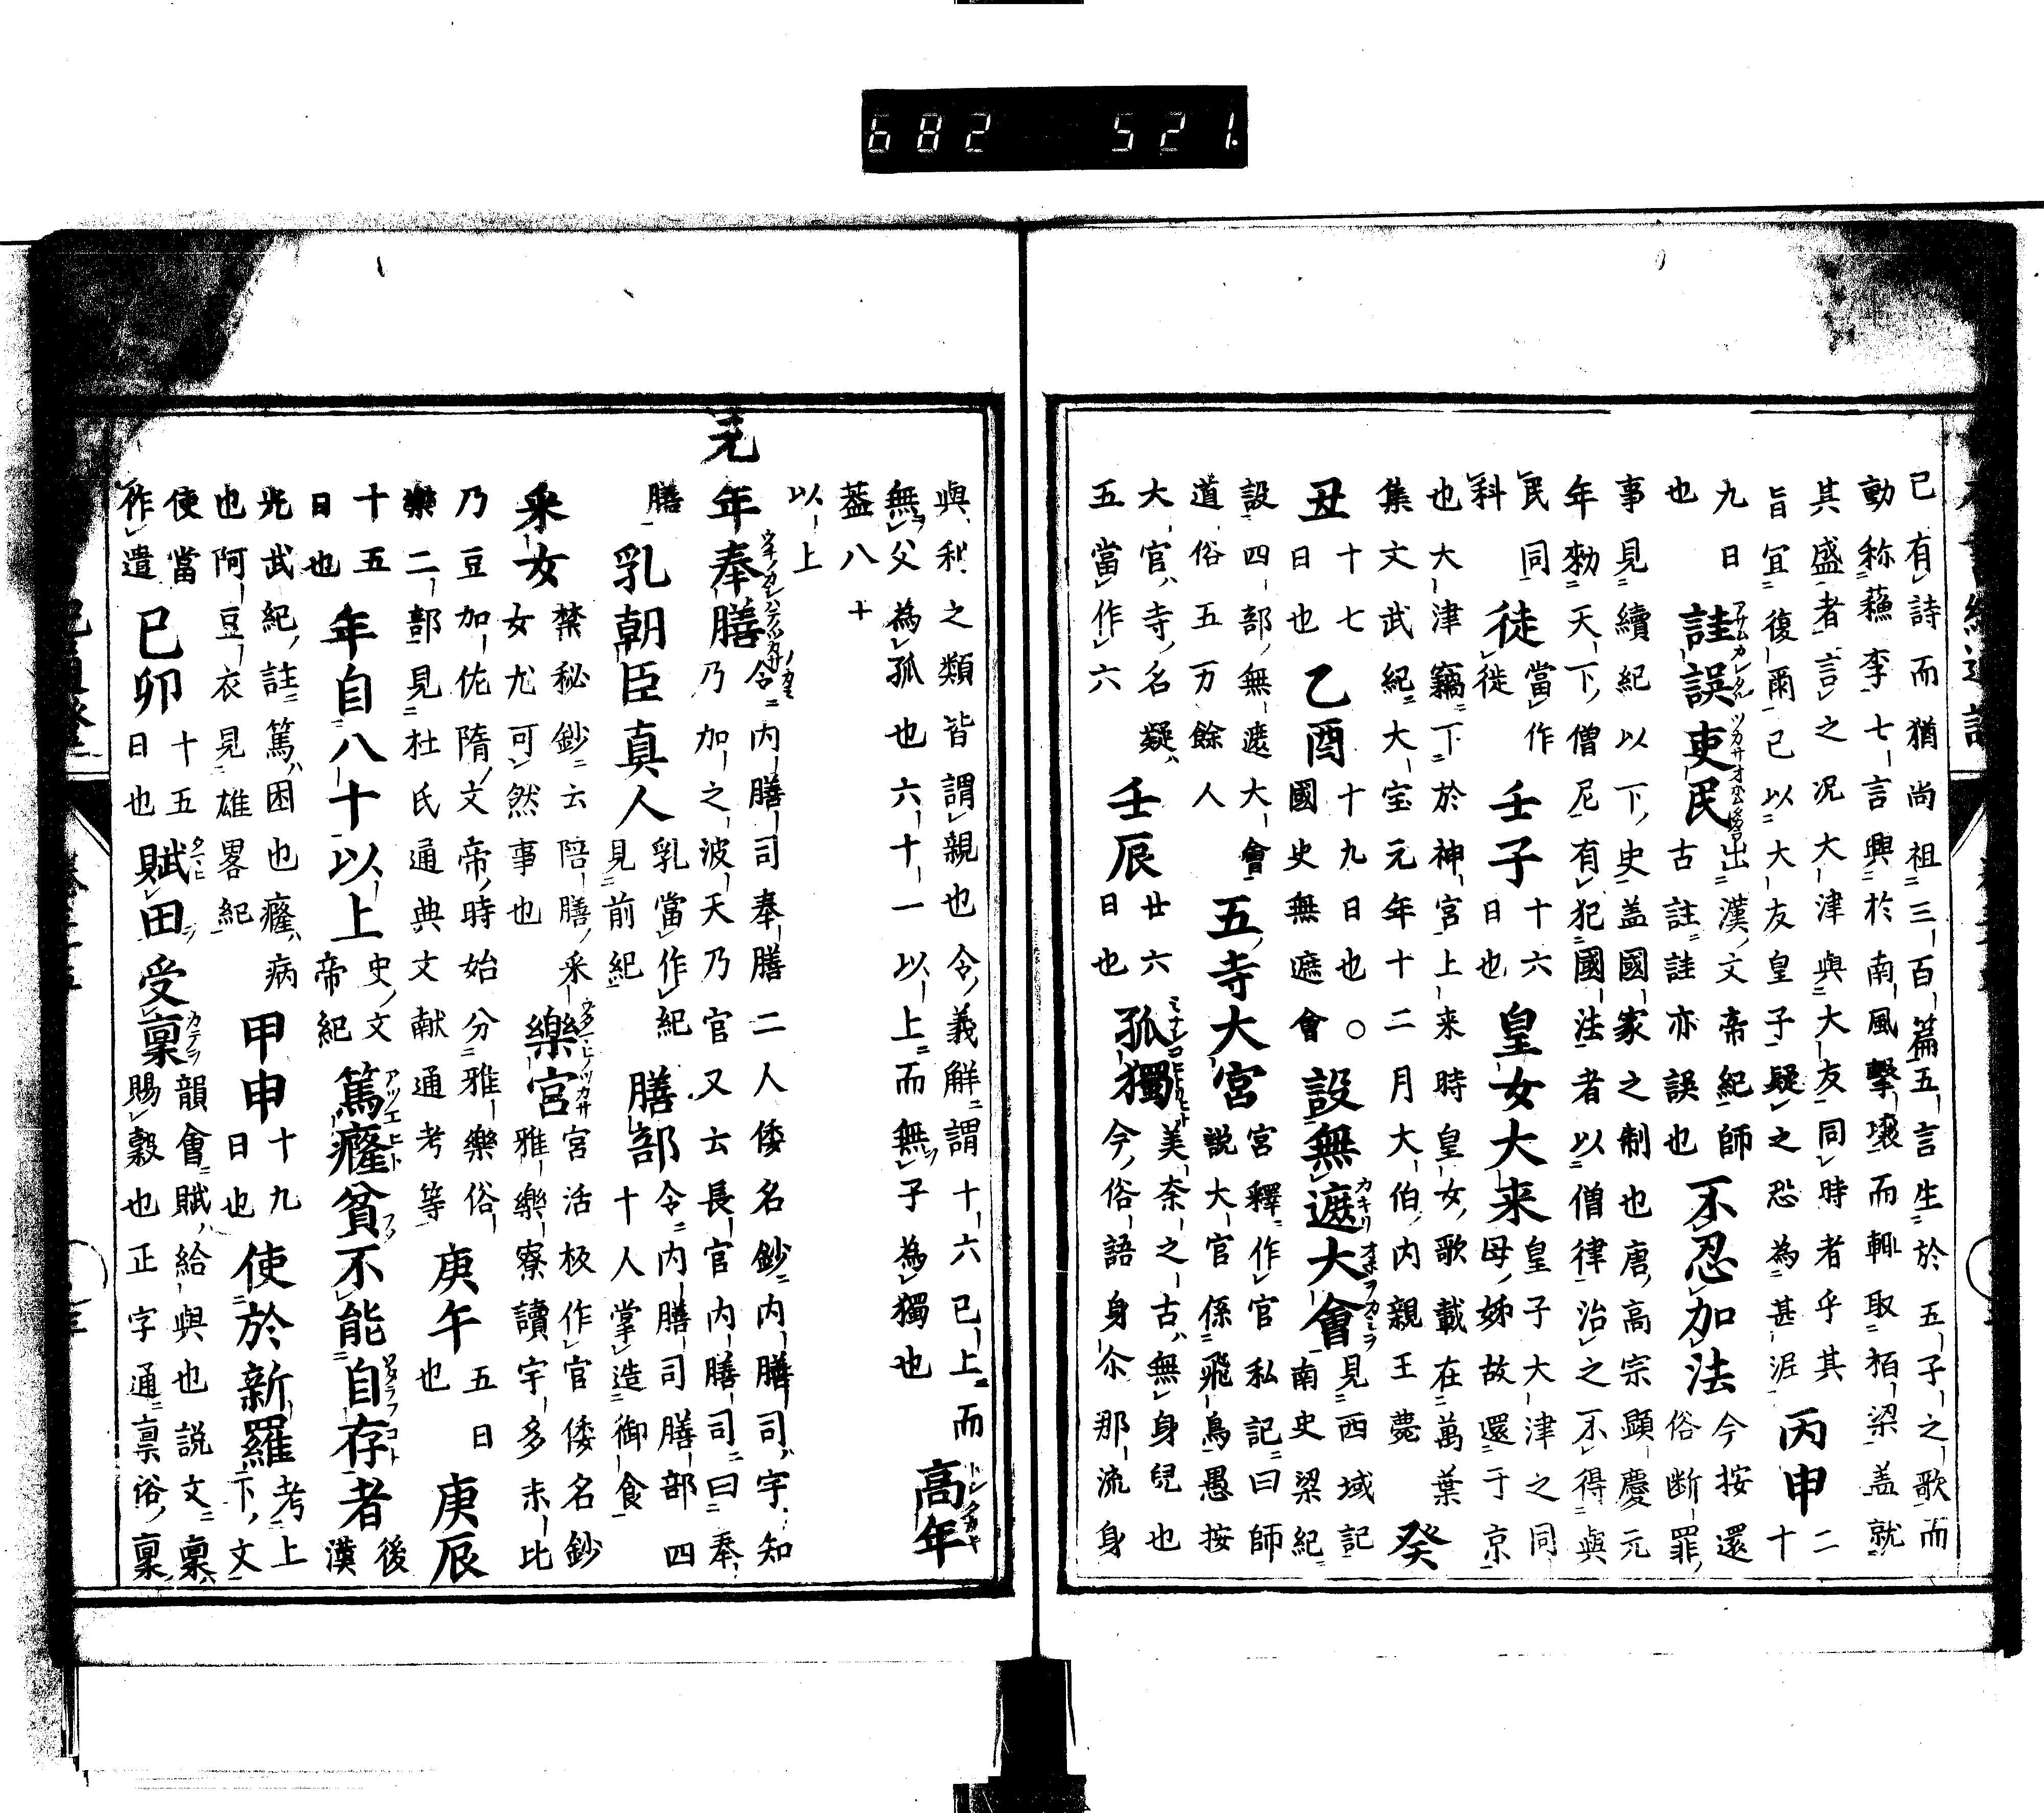 682 521.
已有詩而猶尚祖三百篇五言生於五子之歌而
動称蘓李七言興於南風擊壌而輙取栢梁盖就
其盛者言之况大津與大友同時者乎其
旨冝復爾已以大友皇子疑之恐為甚泥
丙申
二
十
九日
也
詿誤吏民
出漢文帝紀師
古註詿亦誤也
不忍加法
今按還
俗断罪
事見續紀以下史盖國家之制也唐高宗顕慶元
年勑天下僧尼有犯國法者以僧律治之不得與
民同
科
徒
當作
徙
壬子
十六
日也
皇女大来
皇子大津之同
母姊故還于京
也大津竊下於神宮上来時皇女歌載在萬葉
集文武紀大宝元年十二月大伯内親王薨
癸
丑
十七
日也
乙酉
十九日也〇
國史無遮會
設無遮大會
見西域記
南史梁紀
設四部無遮大會
道俗五万餘人
五寺大宮
宮釋作官私記曰師
説大官係飛鳥愚按
大官寺名疑
五當作六
壬辰
廿六
日也
孤獨
美奈之古無身兒也
今俗語身尒那流身
與利之類皆謂親也令義解謂十六已上而
無父為孤也六十一以上而無子為獨也
高年
葢八十
以上
年奉膳
令内膳司奉膳二人倭名鈔内膳司宇知
乃加之波天乃官又云長官内膳司曰奉
膳
乳朝臣真人
乳當作紀
見前紀
膳部
令内膳司膳部四
十人掌造御食
采女
禁秘鈔云陪膳采
女尤可然事也
樂官
宮活板作官倭名鈔
雅樂寮讀宇多末比
乃豆加佐隋文帝時始分雅樂俗
樂二部見杜氏通典文献通考等
庚午
五日
也
庚辰
十五
日也
年自八十以上
史文
帝紀
篤癃貧不能自存者
後
漢
光武紀註篤困也癃病
也阿豆衣見雄畧紀
甲申
十九
日也
使於新羅
考上
下文
使當
作遣
已卯
十五
日也
賦田受稟
韻會賦給與也説文稟
賜穀也正字通禀俗稟